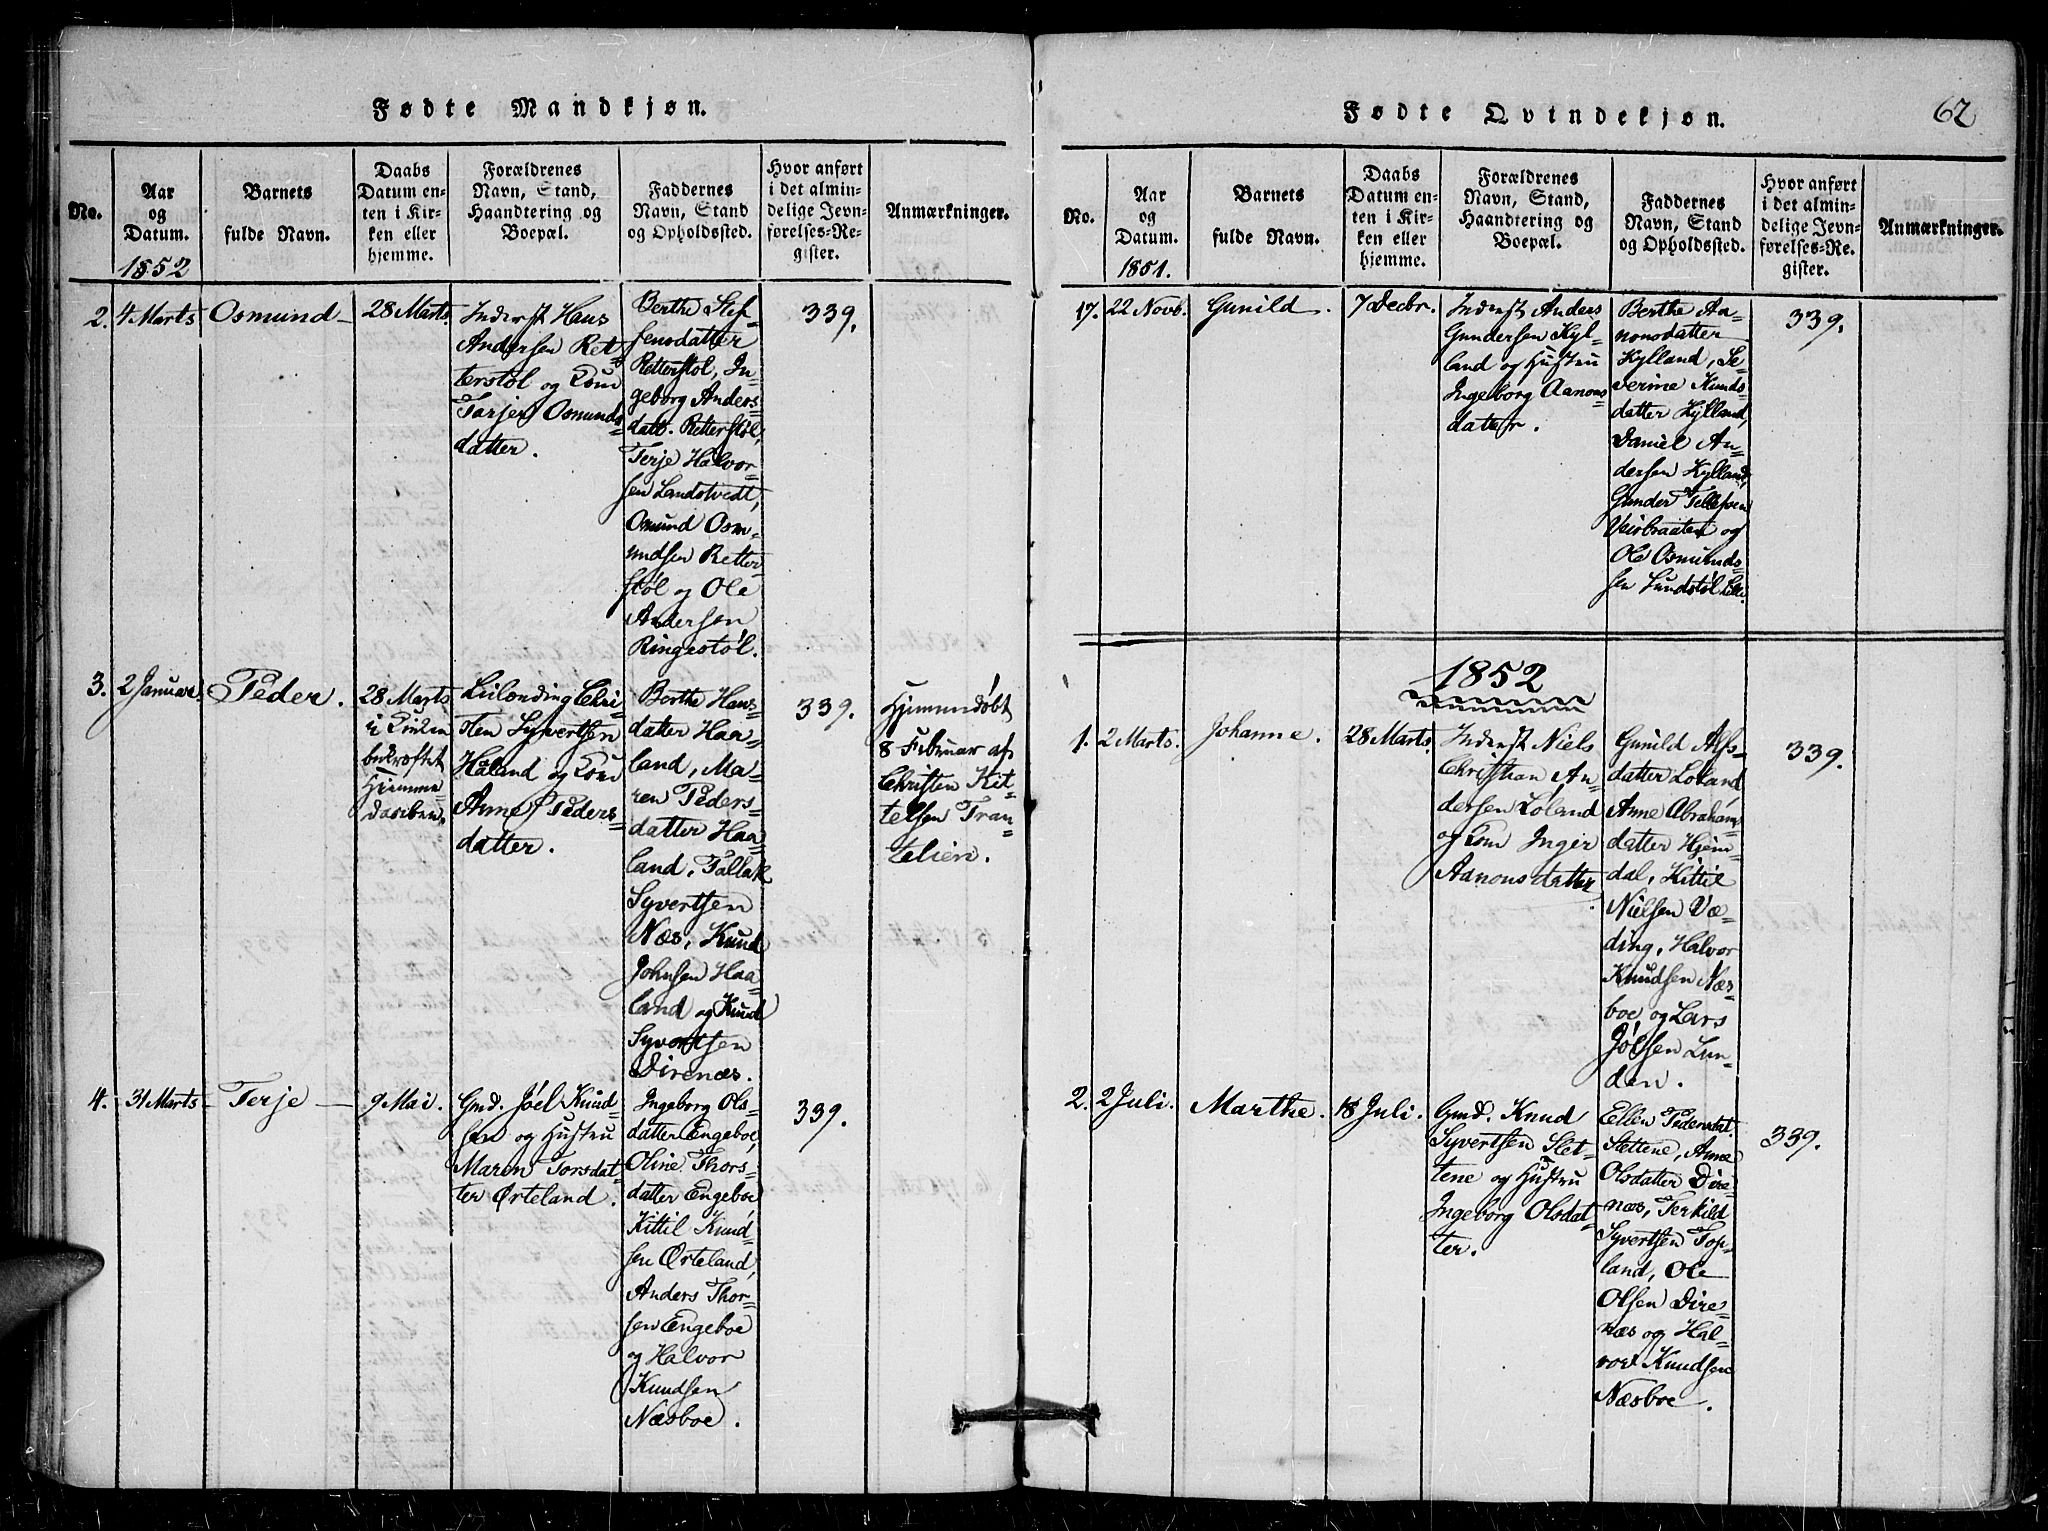 Fødte Mandkjøn.
No.
Aar
og
Datum.
1852
Barnets
fulde Navn.
Daabs
Datum en-
ten i Kir-
ken eller
hjemme.
Forældrenes
Navn, Stand,
Haandtering og
Boepæl.
Faddernes
Navn, Stand
og Opholdssted.
Hvor anført
i det almin-
delige Jevn-
førelses-Re-
gister.
Anmærkninger.
2.
4 Marts
Osmund
28 Marts.
Inderst Hans
Andersen Ret=
terstøl og Kone
Tarjer Osmunds=
datter.
Berthe Stef=
fensdatter
Retterstøl, In=
geborg Anders=
datt. Retterstøl,
Terje Halvor=
sen Landstvedt,
Osmund Osm=
undsen Retter=
støl og Ole
Andersen
Ringestøl.
339.
3.
2 Januar.
Peder.
28 Marts
i Kirken
bekræftet
Hjemme
daaben.
Leilænding Chri=
sten Syvertsen
Håland og Kone
Anne Peders=
datter.
Berthe Hans=
datter Haa=
land, Ma=
ren Peders=
datter Haa=
land, Tallak
Syvertsen
Næs, Knud
Johnsen Haa=
land og Knud
Syvertsen
Direnæs.
339.
Hjemmedøbt
8 Februar af
Christen Kit=
telsen Tran=
telien.
4.
31 Marts
Terje
9 Mai.
Gmd. Jöel Knud=
sen og Hustru
Maren Torsdat=
ter Ørteland.
Ingeborg Ols=
datter Engeboe,
Oline Thors=
datter Engeboe
Kittil Knud=
sen Ørteland,
Anders Thor=
sen Engeboe
og Halvor
Knudsen
Næsboe.
339.
Fødte Qvindekjøn.
62
No.
Aar
og
Datum.
1851.
Barnets
fulde Navn.
Daabs
Datum en-
ten i Kir-
ken eller
hjemme.
Forældrenes
Navn, Stand,
Haandtering og
Boepæl.
Faddernes
Navn, Stand
og Opholdssted.
Hvor anført
i det almin-
delige Jevn-
førelses-Re-
gister.
Anmærkninger.
17.
22 Novb.
Gunild.
7 Decbr.
Inderst Anders
Gundersen Kyl=
land og Hustru
Ingeborg Aanons
datter.
Berthe Aa=
nonsdatter
Kylland, Se=
verine Knuds=
datter Kylland,
Daniel An=
dersen Kylland,
Gunder Tellefsen
Veisbraaten og
Ole Osmunds=
sen Lundstøl
339.
1852
1.
2 Marts.
Johanne.
28 Marts.
Inderst Niels
Christian An=
dersen Loland
og Kone Inger
Aanonsdatter.
Gunild Alfs=
datter Loland
Anne Abrahams=
datter Hjem=
dal, Kittil
Nielsen Væ=
ding, Halvor
Knudsen Næs=
boe og Lars
Jölsen Lun=
den.
339.
2.
2 Juli.
Marthe.
18 Juli.
Gmd. Knud
Syvertsen Slet=
tene og Hustru
Ingeborg Olsdat=
ter.
Ellen Pedersdat.
Slettene, Anne
Olsdatter Dire=
næs, Terkild
Syvertsen Top=
land, Ole
Olsen Dires=
næs og Hal=
vor Knudsen
Næsboe.
339.